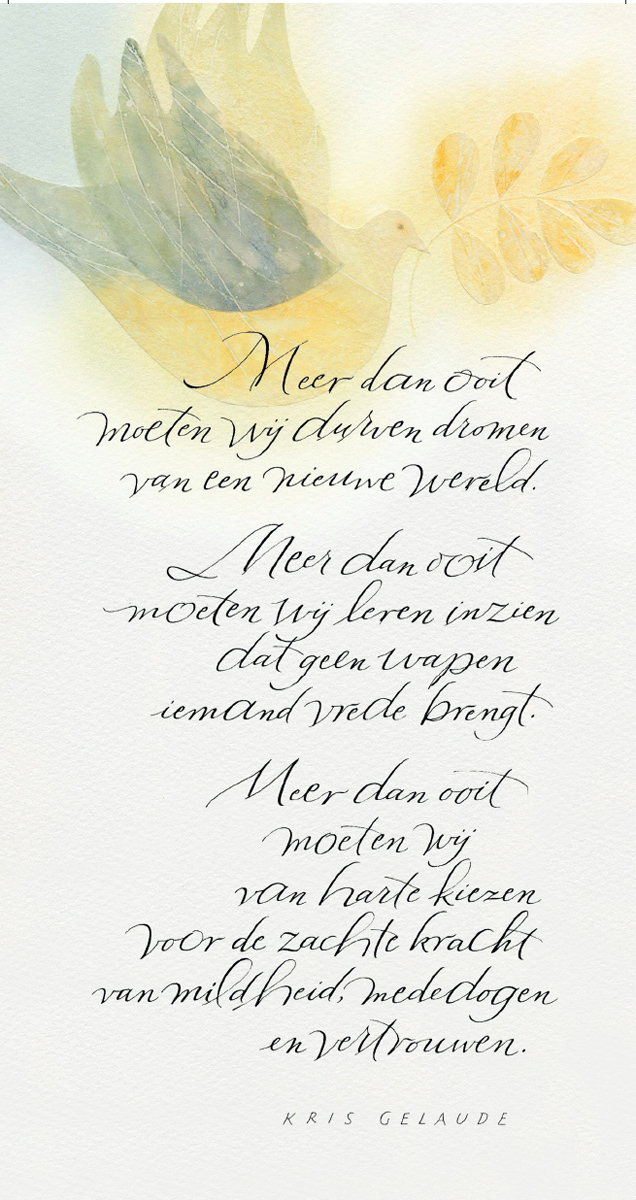 Meer dan ooit
moeten wij durven dromen
van een nieuwe wereld.
Meer dan ooit
moeten wij leren inzien
dat geen wapen
iemand vrede brengt.
Meer dan ooit
moeten wij
van harte kiezen
voor de zachte kracht
van mildheid, mededogen
en vertrouwen.
KRIS GELAUDE